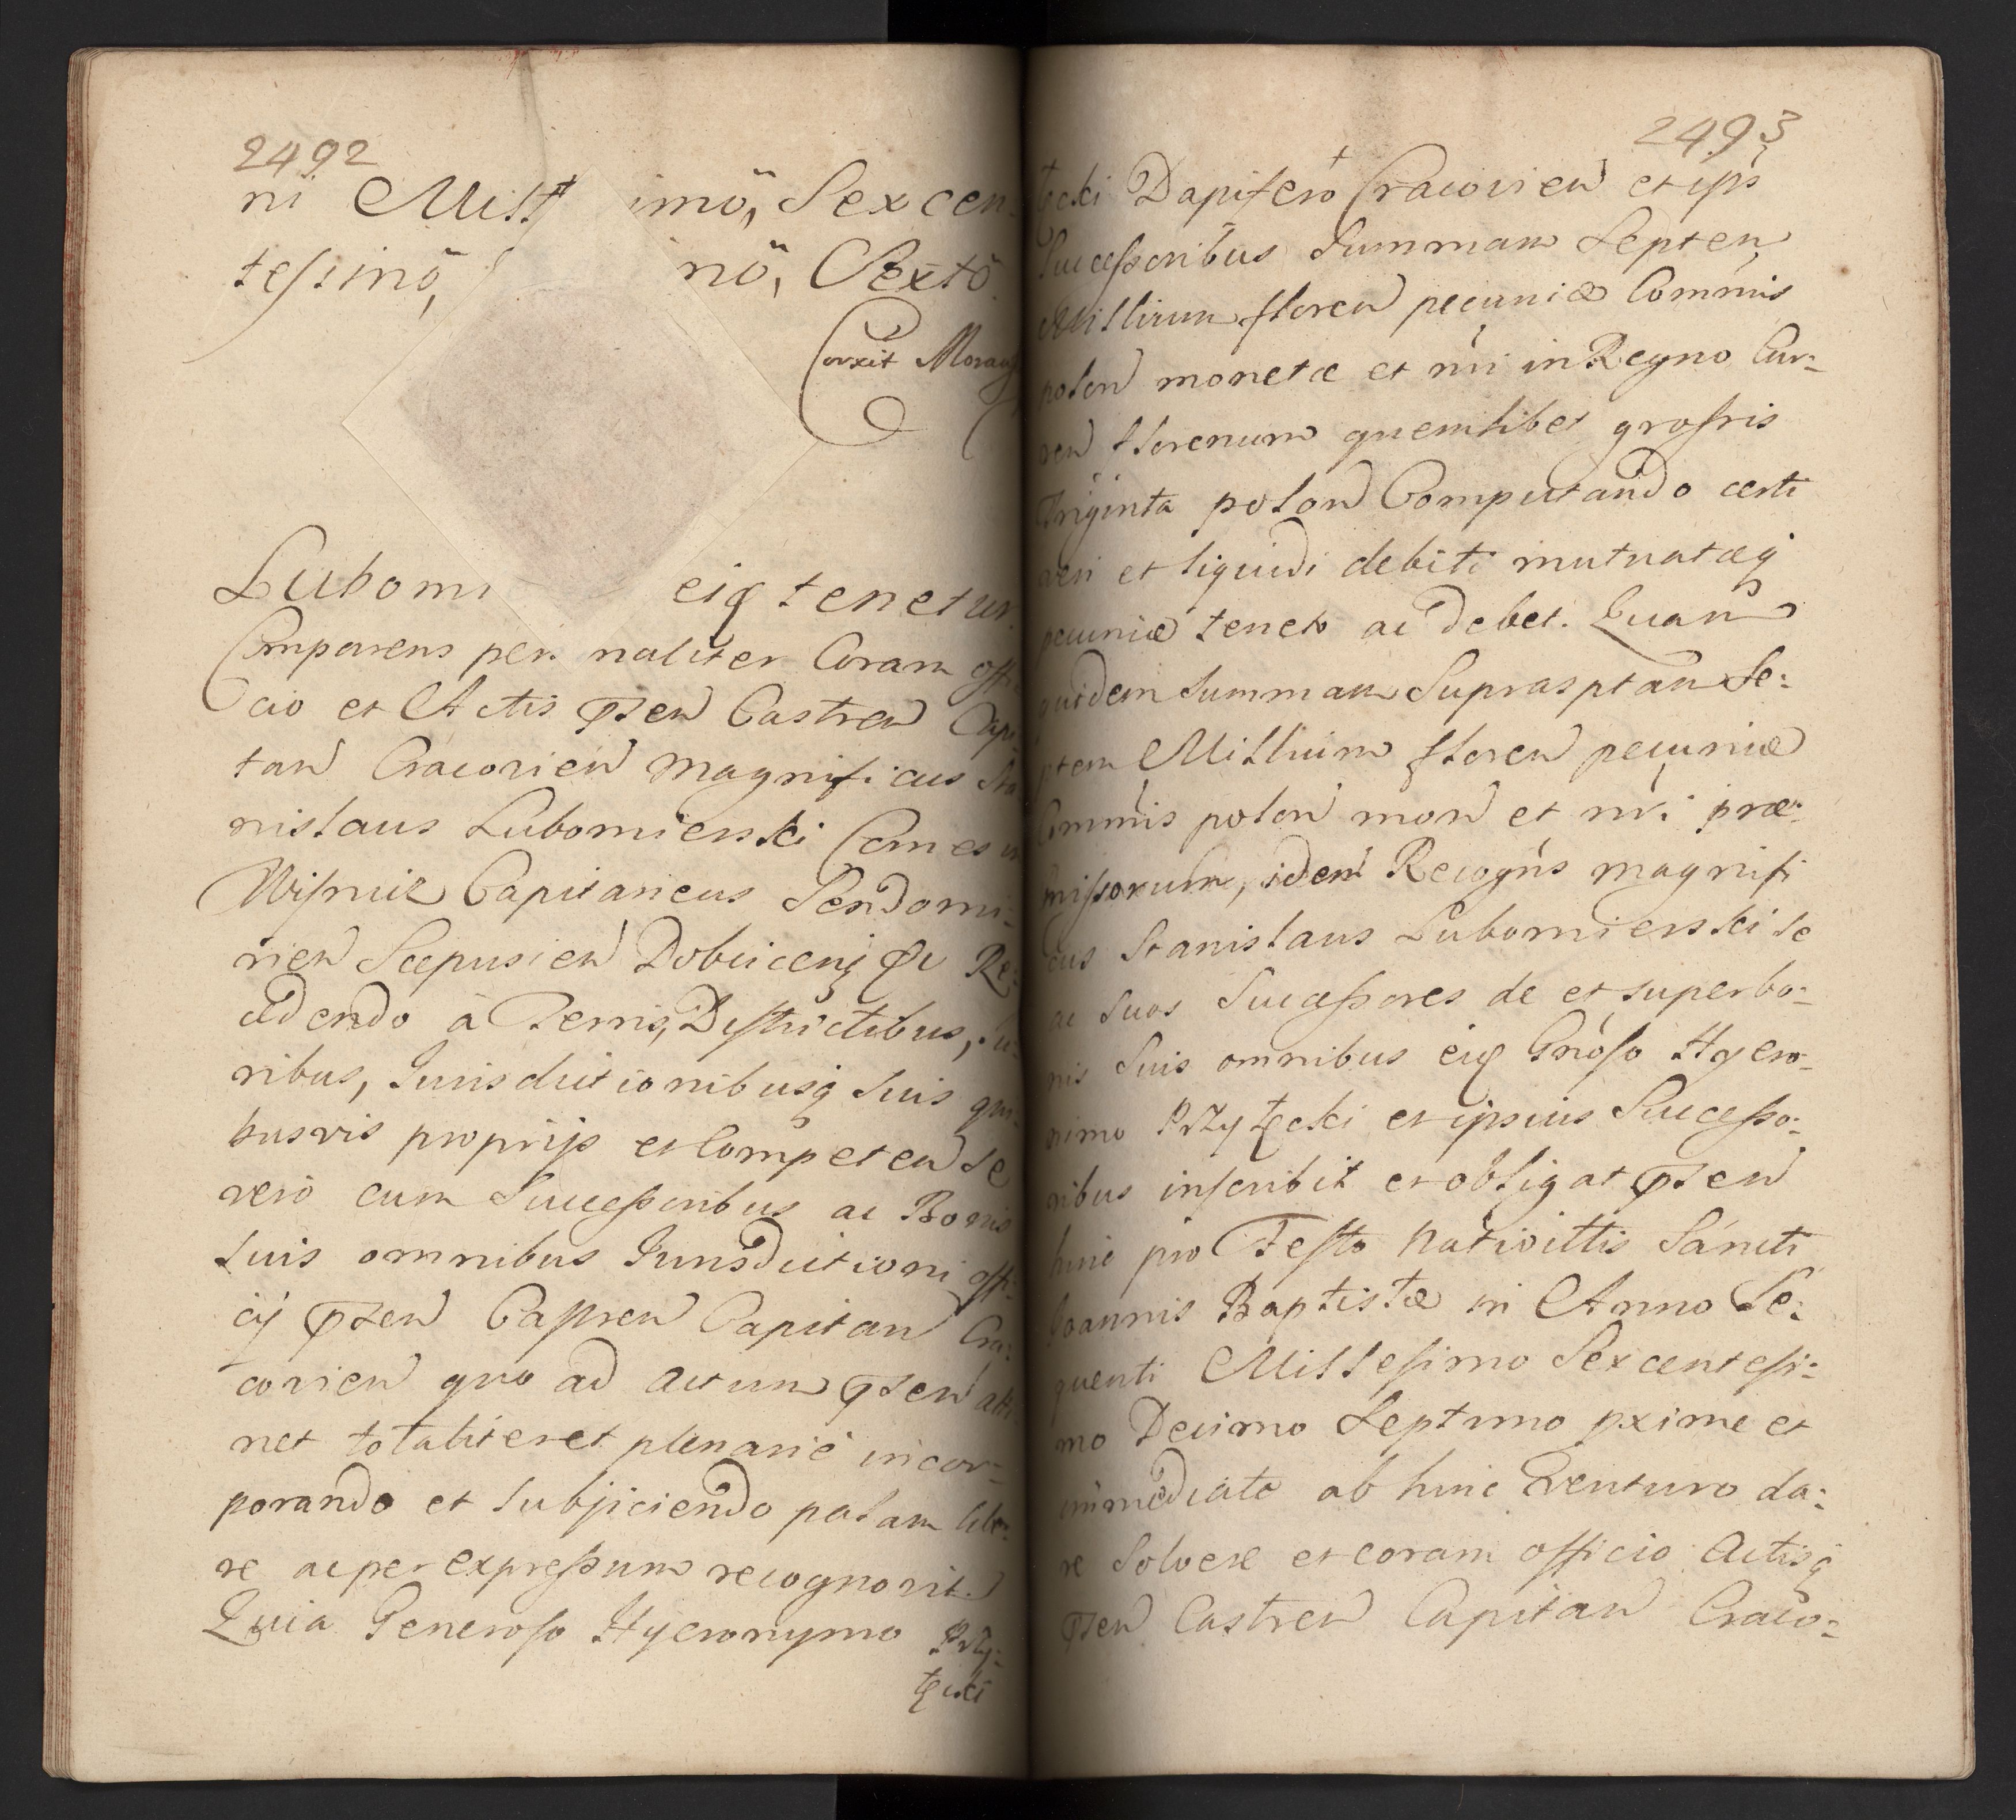 2492
ni Mill imõ, Sexcen-
tesimõ, nõ, Sextõ.
Corxit Moraws
Lubomi eiq tenetur.
Comparens per naliter Coram offi
cio et Actis pñten Castren Capi
tan Cracovien Magnificus Sta
nislaus Lubomierski Comes in
Wisnicz Capitaneus Sendomi-
rien Scepusien Dobcicenq &c Re-
cedendo à Terris, Districtibus, Fo-
ribus, Jurisdictionibusq suis qui-
busvis proprijs et Competen se
vero cum Successoribus ac Bonis
suis omnibus Jurisdictioni offi-
cij pñten Castren Capitan Cra-
covien quo ad actum pñten atti
net totaliter et plenarie incor-
porando et subjiciendo palam libe-
re ac per expressum recognovit.
Quia Generoso Hyeronymo Przy-
łęcki
2493
łęcki Dapifero Cracovien et ips
Successoribus Summam Septem
Millium floren pecuniæ Commis
polon monetæ et nri in Regno Cur-
ren florenum quemlibet grossis
Triginta polon Computando certi
veri et liquidi debiti mutuatæq
pecuniæ tenetr ac debet. Quam
quidem Summam Suprasptam Se-
ptem Millium floren pecuniæ
Commis polon mon et nri præ-
missorum, idem Recogns magnifi
cus Stanislaus Lubomierski se
ac suos Successores de et super bo-
nis suis omnibus eiq Gnoso Hyero-
nimo Przyłęcki et ipsius Successo-
ribus inscribit et obligat pñten
hinc pro Festo Nativittis Sancti
Joannis Baptistæ in Anno Se-
quenti Millesimo Sexcentesi-
mo Decimo Septimo pxime et
immediate ab hinc venturo da-
re solvere et coram officio Actisq
pñten Castren Capitan Craco-